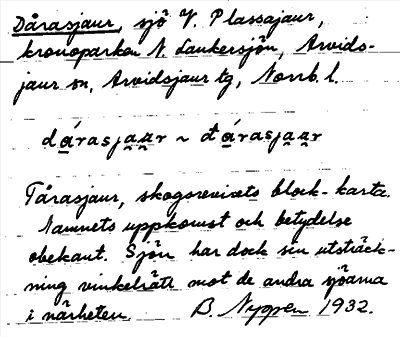 Dårasjaur, sjö V. Plassajaur,
kronoparken N. Laukersjön, Arvids-
jaur sn, Arvidsjaur tg, Norrb. l.
da̱´rasja̯a̯r ~ đa̱´rasja̯a̯r
Tårasjaur, skogsrevirets block-karta.
Namnets uppkomst och betydelse
obekant. Sjön har dock sin utsträck-
ning vinkelrätt mot de andra sjöarna
i närheten. B. Nyppen 1932.